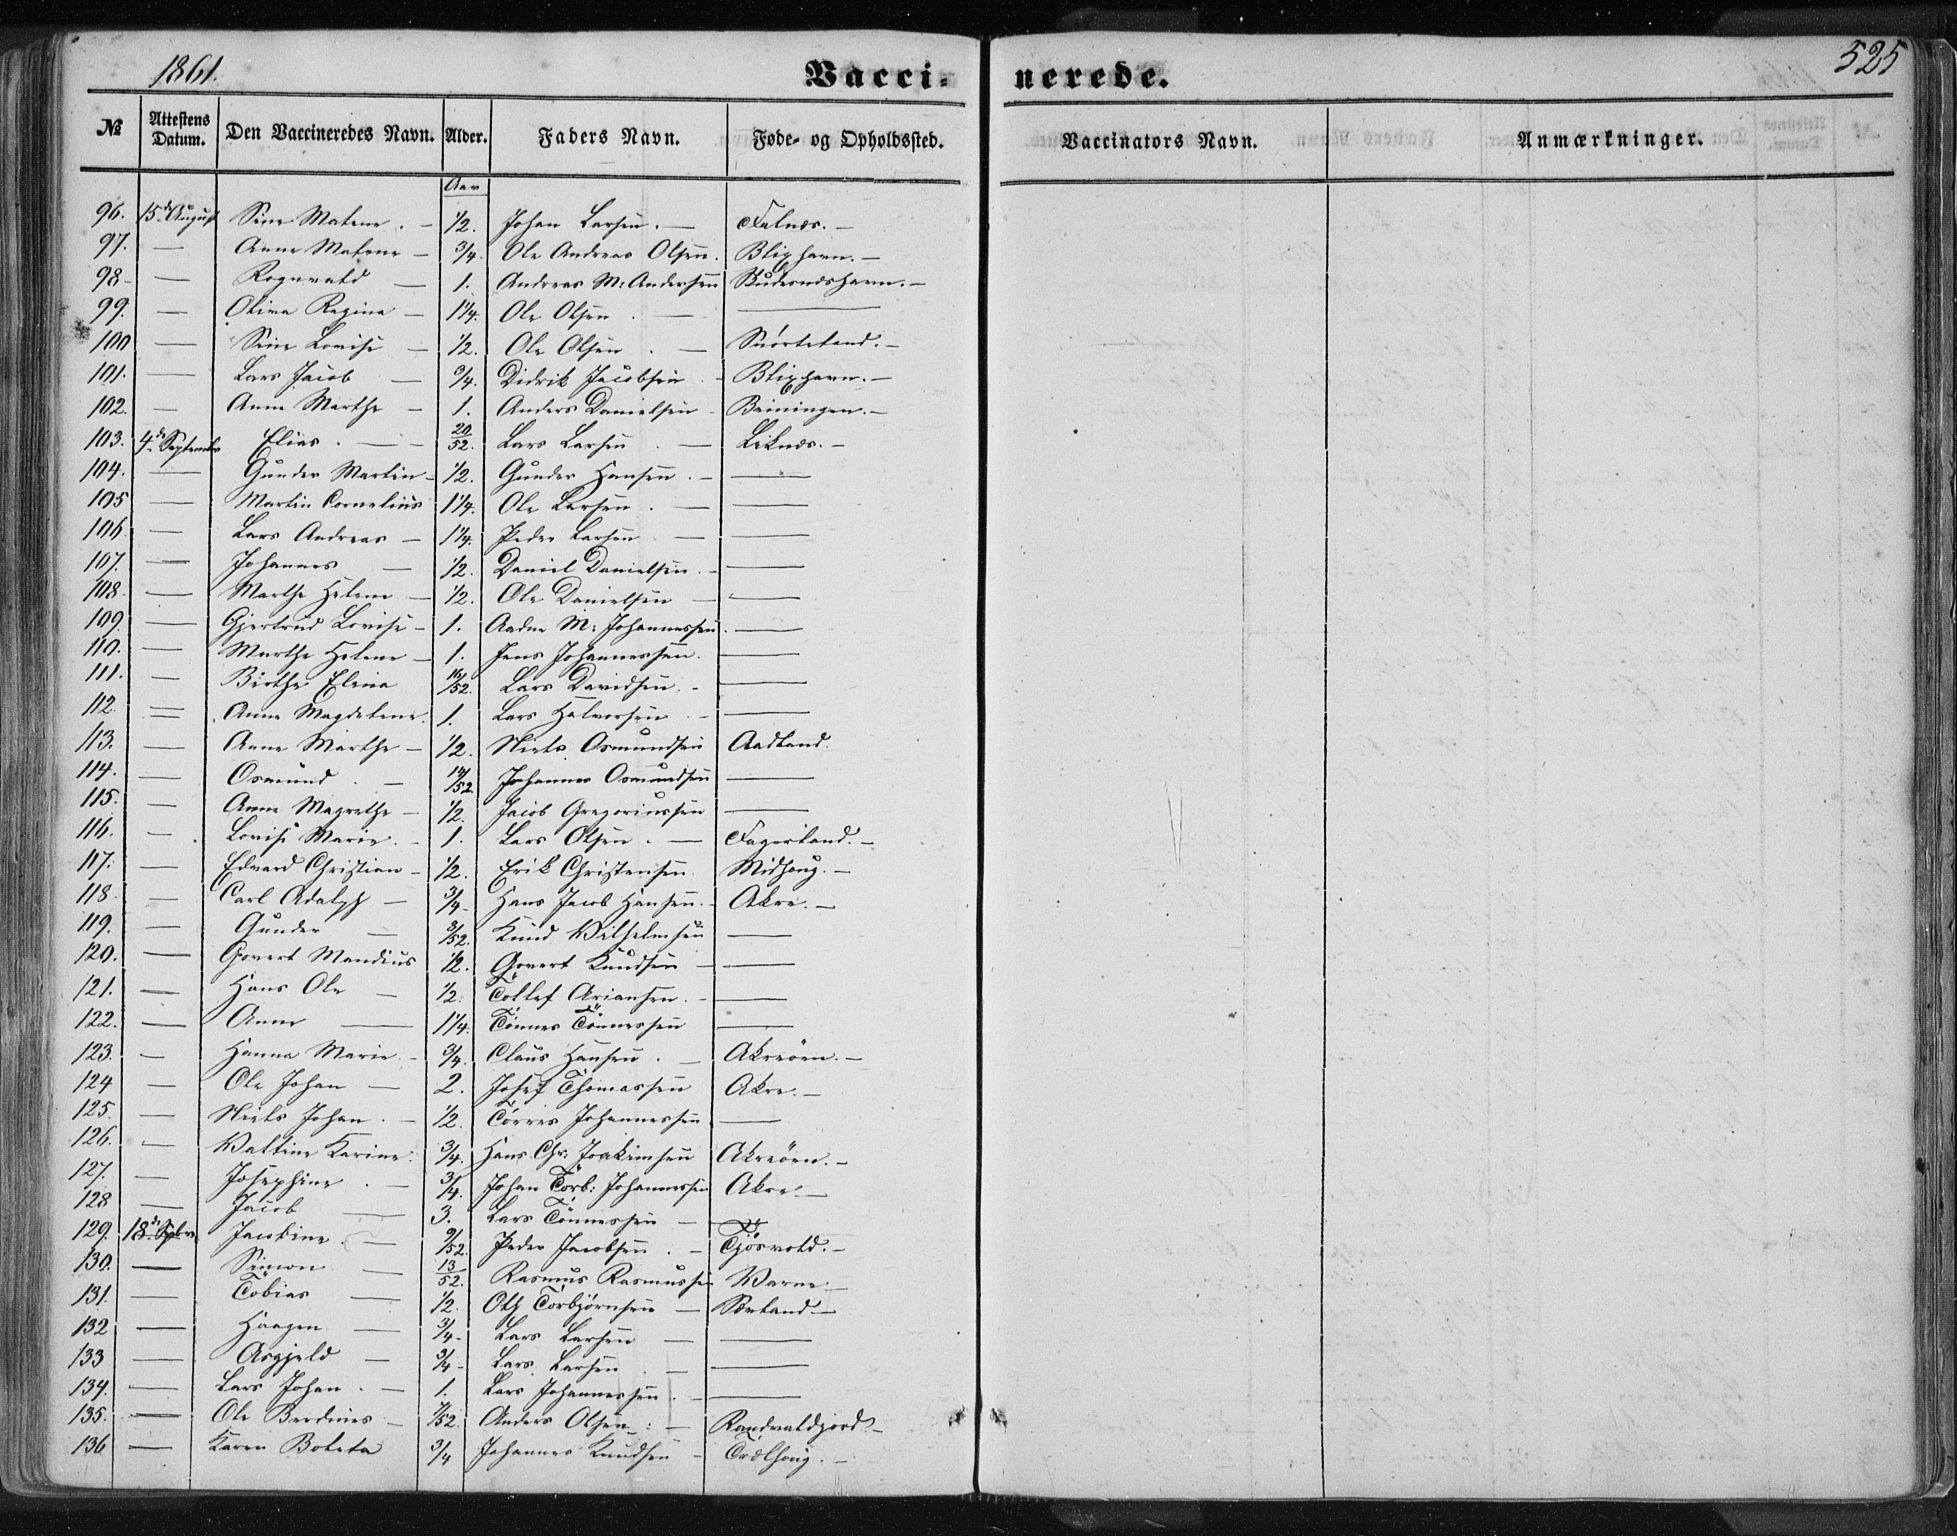 1861.
Vacci-
nerede.
525
№ Attestens Datum. Den Vaccineredes Navn. Alder. Faders Navn. Føde- og Opholdssted. Vaccinators Navn. Anmærkninger.
Aar
96. 15de August Sine Malene. - 1/2. Johan Larsen. - Falnæs. -
97. — Anne Malene - 3/4. Ole Andreas Olsen. Blixhavn. -
98 - — Rognvald — 1. Andreas M: Andersen Skudesneshavn. -
99. — Oline Regine - 1 1/4. Ole Olsen. — ——
100 — Sine Lovise - 1/2. Ole Olsen. — Snørteland. -
101. — Lars Jacob - 3/4. Didrik Jacobsen. - Blixhavn. -
102. — Anne Marthe - 1. Anders Danielsen - Beiningen. -
103. 4de September Elias. — - 20/52. Lars Larsen. — Liknæs. -
104. — Gunder Martin - 1/2. Gunder Hansen. - ——
105 — Martin Cornelius 1 1/4. Ole Larsen. — ——
106. — Lars Andreas - 1 1/4. Peder Larsen — ——
107. — Johannes — 1/2. Daniel Danielsen. - ——
108. — Marthe Helene - 1/2. Ole Danielsen — ——
109. — Gjertrud Lovise - 1. Aadne M: Johannessen. ——
110. — Marthe Helene - 1. Jens Johannessen. ——
111. — Birthe Elina 16/52. Lars Davidsen. - ——
112. — Anne Magdelene. 1. Lars Halvorsen. - ——
113. — Anne Marthe - 1/2. Niels Osmundsen Aadland.
114. — Osmund. — 14/52. Johannes Osmundsen ——
115. — Anne Magrethe - 1/2. Jacob Gregoriussen ——
116. — Lovise Marie. - 1. Lars Olsen. — Fagerland. -
117. — Edvard Christian - 1/2. Erik Christensen. Midhoug. -
118. — Carl Adolph - 3/4. Hans Jacob Hansen. - Akre. -
119. — Gunder — 3/52. Knud Vilhelmsen ——
120. — Govert Mandius 1/2. Govert Knudsen - ——
121. — Hans Ole — 1/2. Tollef Ariansen. - ——
122. — Anne — 1 1/4. Tönnes Tönnessen ——
123. — Hanna Marie. - 3/4. Claus Hansen. — Akreöen. -
124 — Ole Johan — 2. Josef Thomassen Akre. -
125. — Niels Johan. - 1/2. Törres Johannessen ——
126. — Valtine Karine. 3/4. Hans Chr. Joakimsen Akreöen. -
127. — Josephine. - 3/4. Johan Torb: Johannessen Akre. -
128 — Jacob — 3. Lars Tönnessen — ——
129. 18de Septbr. Jacobine. — 9/52. Peder Jacobsen. - Tjösvold. -
130. — Simon — 13/52. Rasmus Rasmussen Varne. -
131. — Tobias — 1/2. Ole Torbjörnsen — Sæland. -
132 — Haagen — 3/4. Lars Larsen — ——
133 — Asgjeld — 3/4. Lars Larsen — ——
134. — Lars Johan. - 1. Lars Johannessen. - ——
135. — Ole Berdines - 7/52. Anders Olsen. — Kandvaldgjord -
136 — Karen Boleta 3/4 Johannes Knudsen - Trælhoug. -